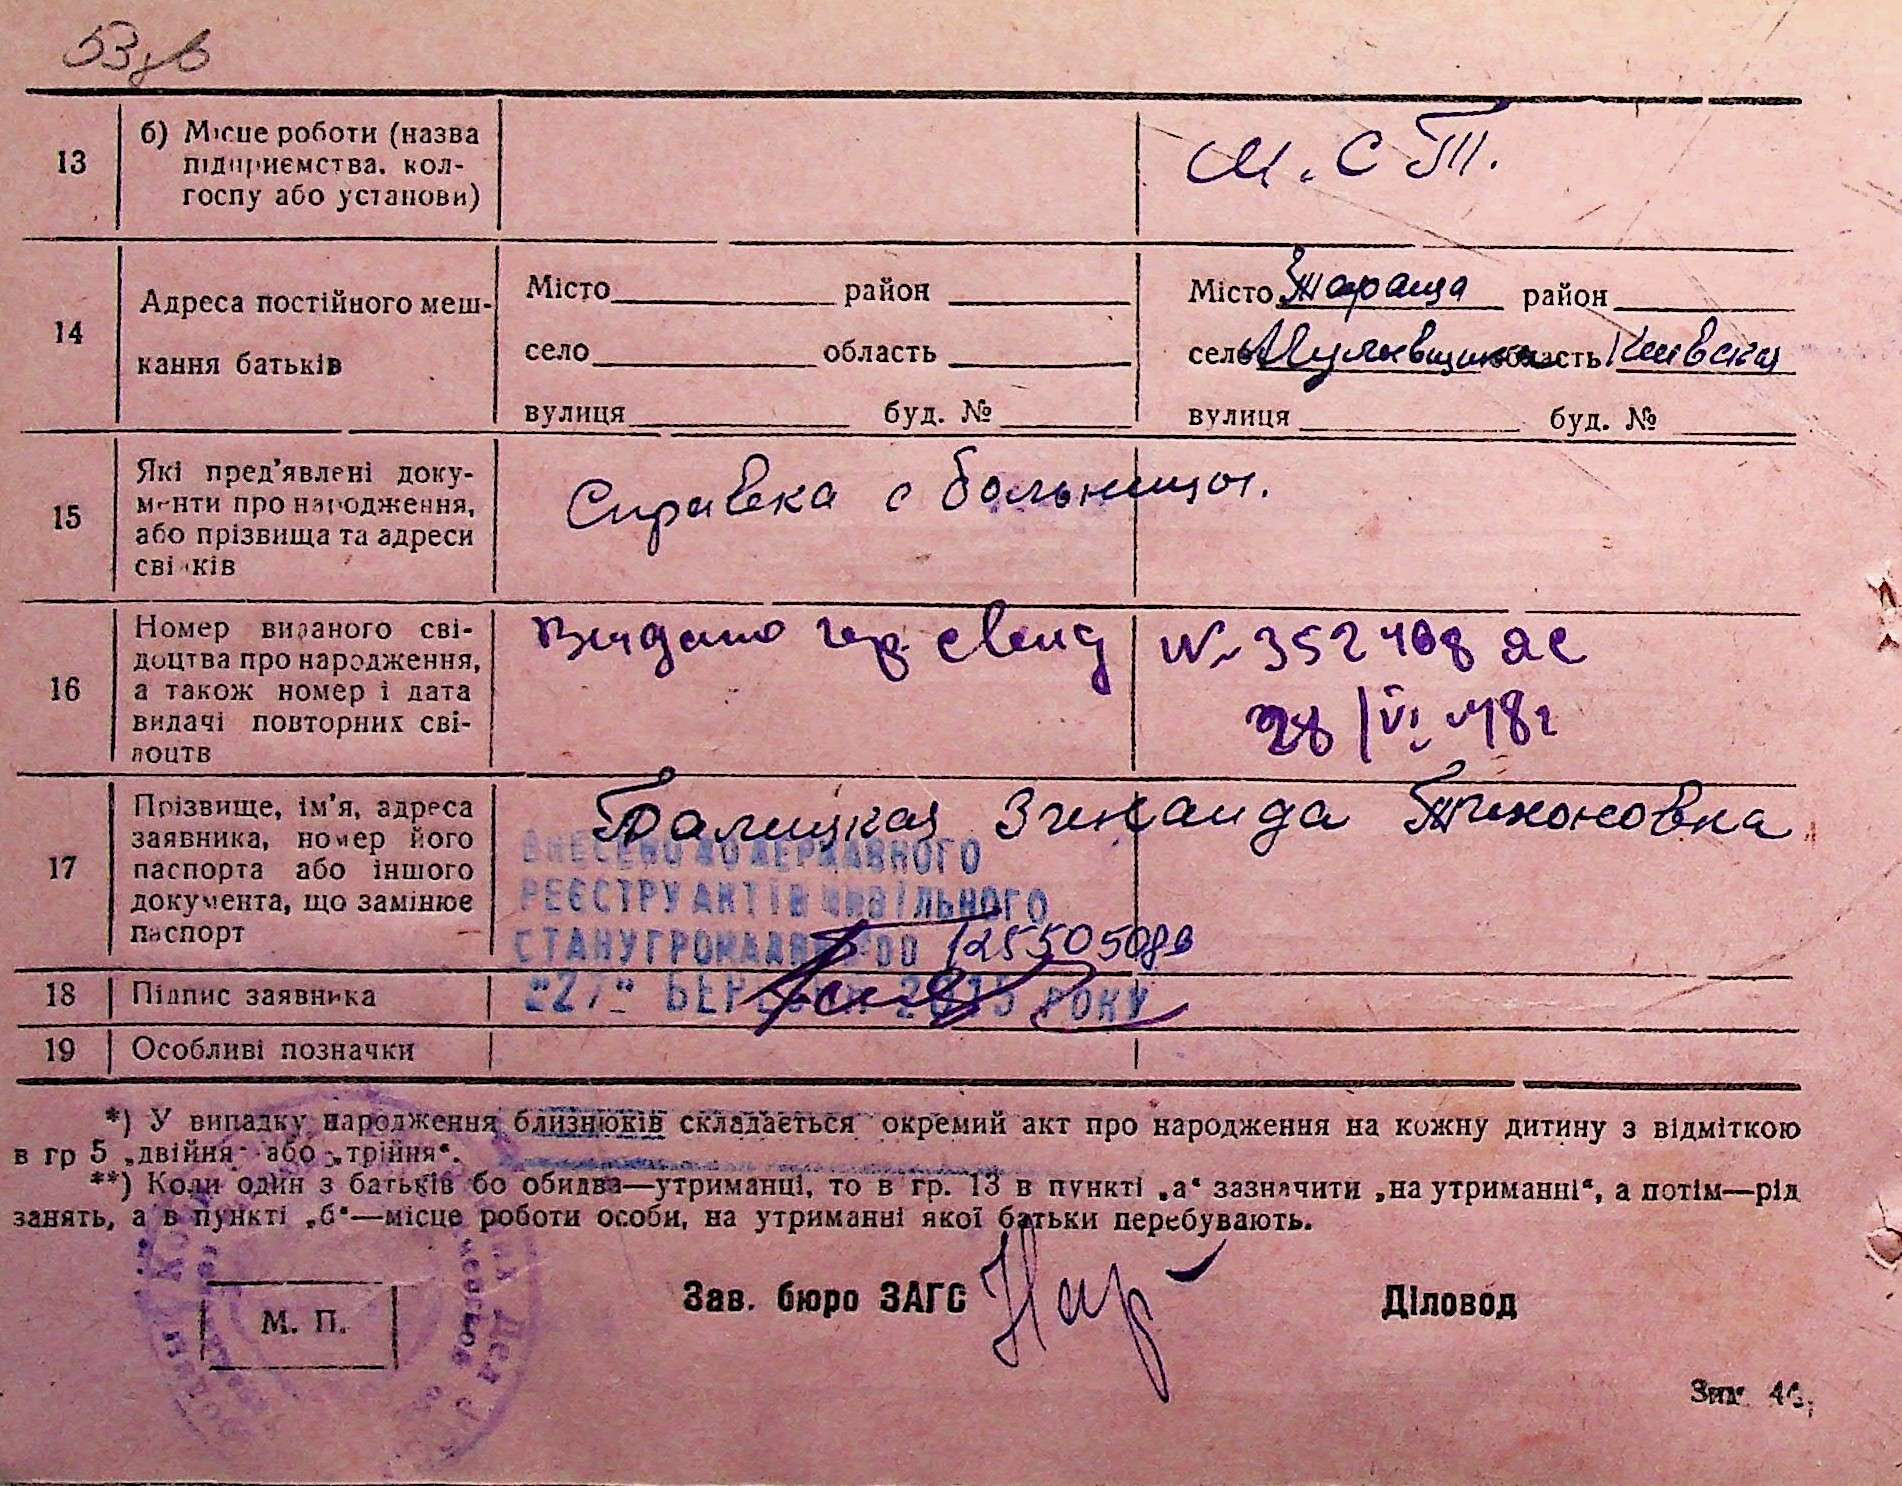 53
13
б) Місце роботи (назва
підприємства, кол-
госпу або установи)
М. С Т.
14
Адреса постійного меш-
кання батьків
Місто район
село область
вулиця буд. №
Місто Тараща район
село область Киевская
вулиця буд. №
15
Які пред'явлені доку-
менти про народження,
або прізвища та адреси
свідків
Справка с больницы.
16
Номер виданого сві-
доцтва про народження,
а також номер і дата
видачі повторних сві-
доцтв
Видано
28/VI 48 г
17
Прізвище, ім'я, адреса
заявника, номер його
паспорта або іншого
документа, що замінює
паспорт
Зинаида Тихоновна
ВНЕСЕНО ДО ДЕРЖАВНОГО
РЕЄСТРУ АКТІВ ЦИВІЛЬНОГО
СТАНУ ГРОМАДЯН
"27" БЕРЕЗНЯ 2015 РОКУ
18
Підпис заявника
19
Особливі позначки
*) У випадку народження близнюків складається окремий акт про народження на кожну дитину з відміткою
в гр 5 „двійня" або „трійня".
**) Коли один з батьків бо обидва—утриманці, то в гр. 13 в пункті „а" зазначити „на утриманні", а потім—рід
занять, а в пункті „б"—місце роботи особи, на утриманні якої батьки перебувають.
М. П.
Зав. бюро ЗАГС
Діловод